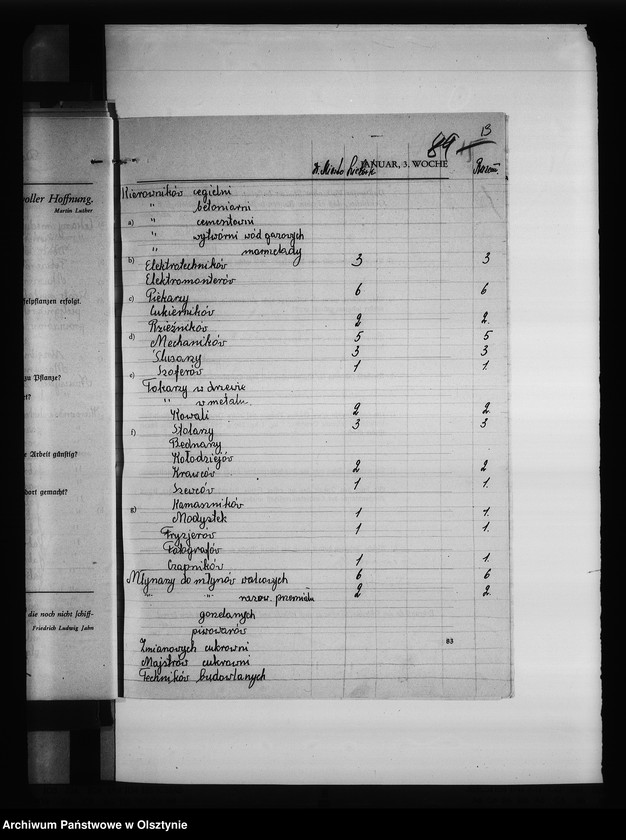 oller Hoffnung.
Martin Luther
felpflanzen erfolgt.
zu Pflanze?
t?
e Arbeit günstig?
dort gemacht?
die noch nicht schiff-
Friedrich Ludwig Jahn
13
89
JANUAR, 3. WOCHE
Razem
Kierowników cegielni
" betoniarni
a) " cementowni
" wytwórni wód gazowych
" marmelady
b) Elektrotechników 3 3
Elektromonterów
c) Piekarzy 6 6
Cukierników
Rzeźników 2 2.
d) Mechaników 5 5
Ślusarzy 3 3
e) Szoferów 1 1.
Tokarzy w drzewie
" w metalu
Kowali 2 2.
f) Stolarzy 3 3
Bednarzy
Kołodziejów
Krawców 2 2
Szewców 1 1.
g) Kamaszników
Modystek 1 1.
Fryzjerów 1 1.
Fotografów
Czapników 1 1.
Młynarzy do młynów walcowych 6 6
" " razow. przemiału 2 2.
gorzelanych
piwowarów
Zmianowych cukrowni
83
Majstrów cukrowni
Techników budowlanych
Archiwum Państwowe w Olsztynie